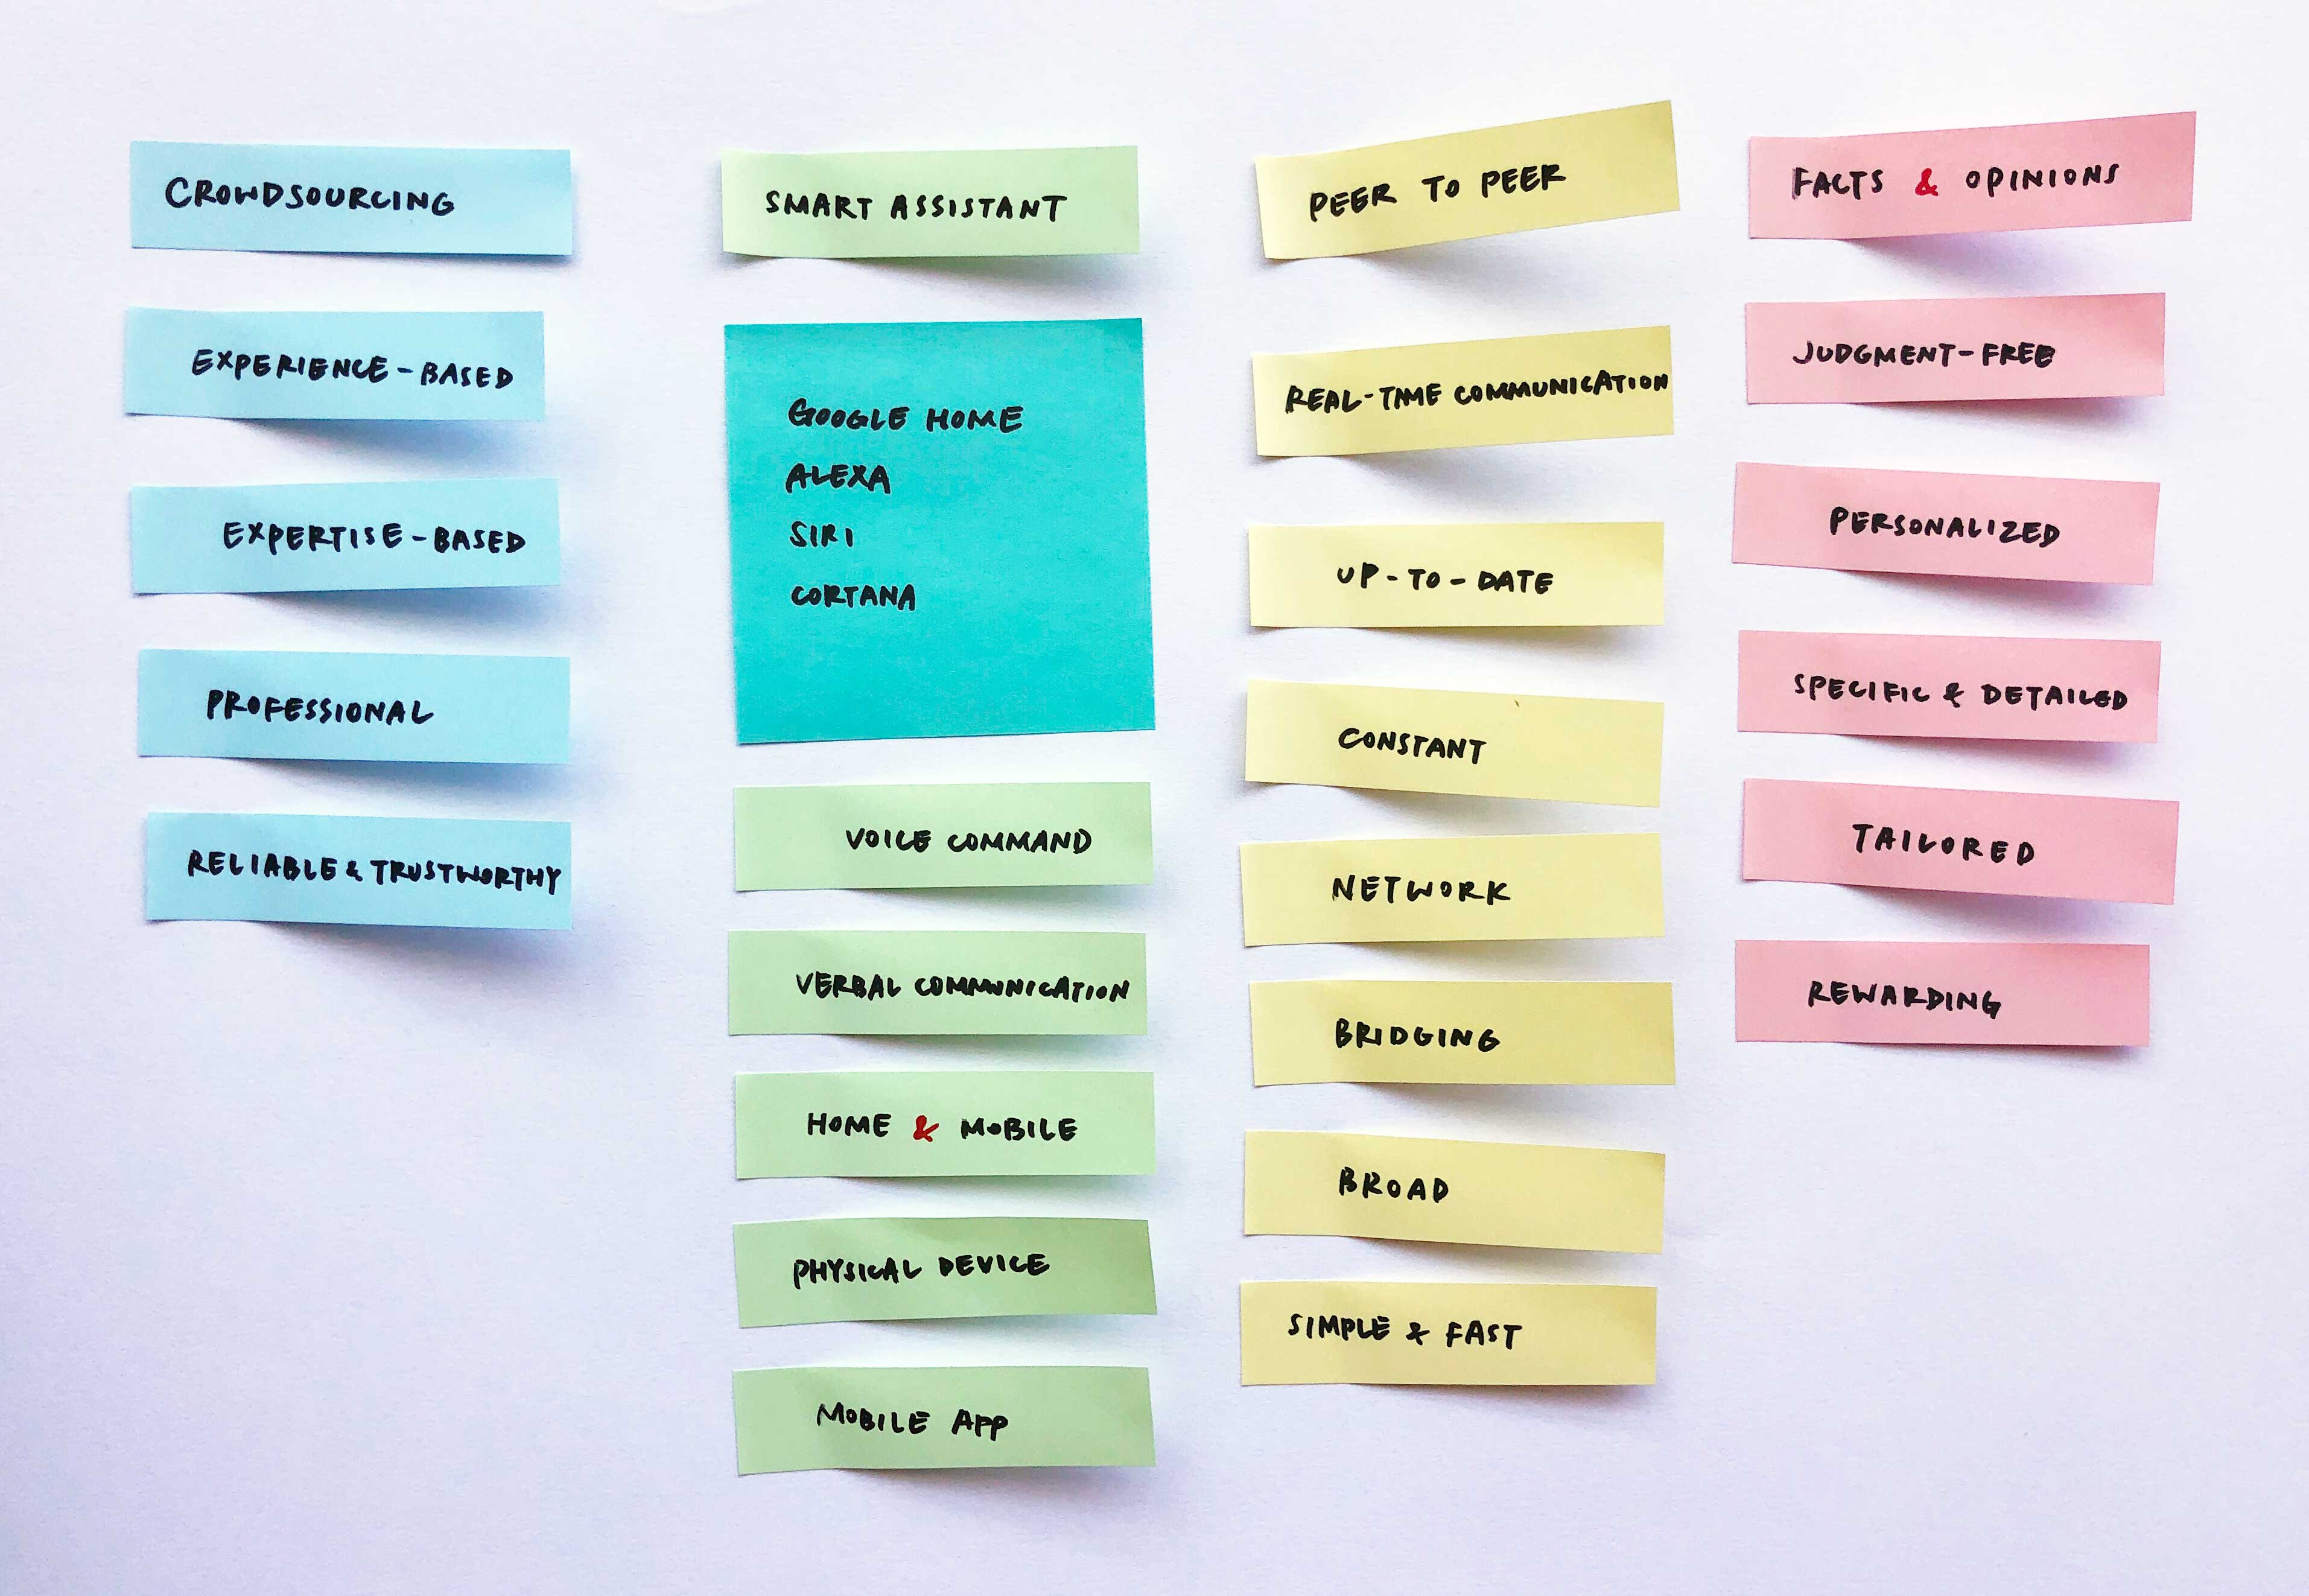 CROWDSOURCING
EXPERIENCE-BASED
EXPERTISE-BASED
PROFESSIONAL
RELIABLE & TRUSTWORTHY
SMART ASSISTANT
GOOGLE HOME
ALEXA
SIRI
CORTANA
VOICE COMMAND
VERBAL COMMUNICATION
HOME & MOBILE
PHYSICAL DEVICE
MOBILE APP
PEER TO PEER
REAL-TIME COMMUNICATION
UP-TO-DATE
CONSTANT
NETWORK
BRIDGING
BROAD
SIMPLE & FAST
FACTS & OPINIONS
JUDGMENT-FREE
PERSONALIZED
SPECIFIC & DETAILED
TAILORED
REWARDING